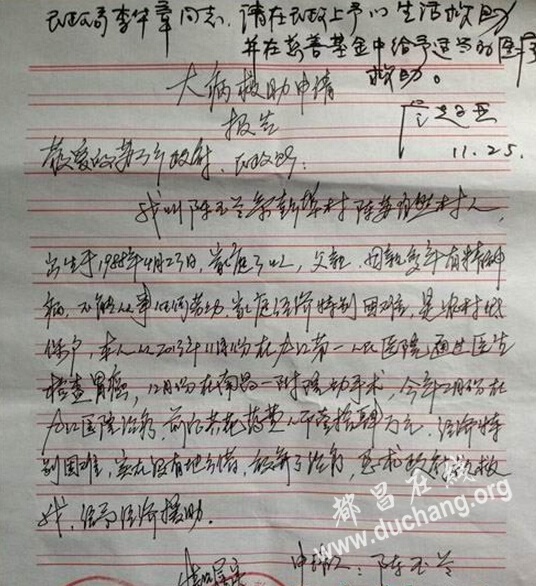 民政局李华章同志：请在民政上予以生活救助
并在慈善基金中给予适当的医疗
救助。
11.25.
大病救助申请
报告
敬爱的 乡政府、民政所：
我叫陈玉兰 彭埠村陈 村人，
出生于1988年4月23日，家庭 口人，父亲、母亲 年有精神
病，不能从事任何劳动，家庭经济特别困难，是农村低
保户，本人从2013年11月份在九江第一人民医院通过医生
检查胃癌，12月份在南昌一附院动手术，今年2月份在
九江医院治疗，前后共花药费人民币壹拾 万元，经济特
别困难，实在没有地方借，放弃了治疗，恳求政府救救
我，给予经济援助。
申请人：陈玉兰
都昌在线
www.duchang.org